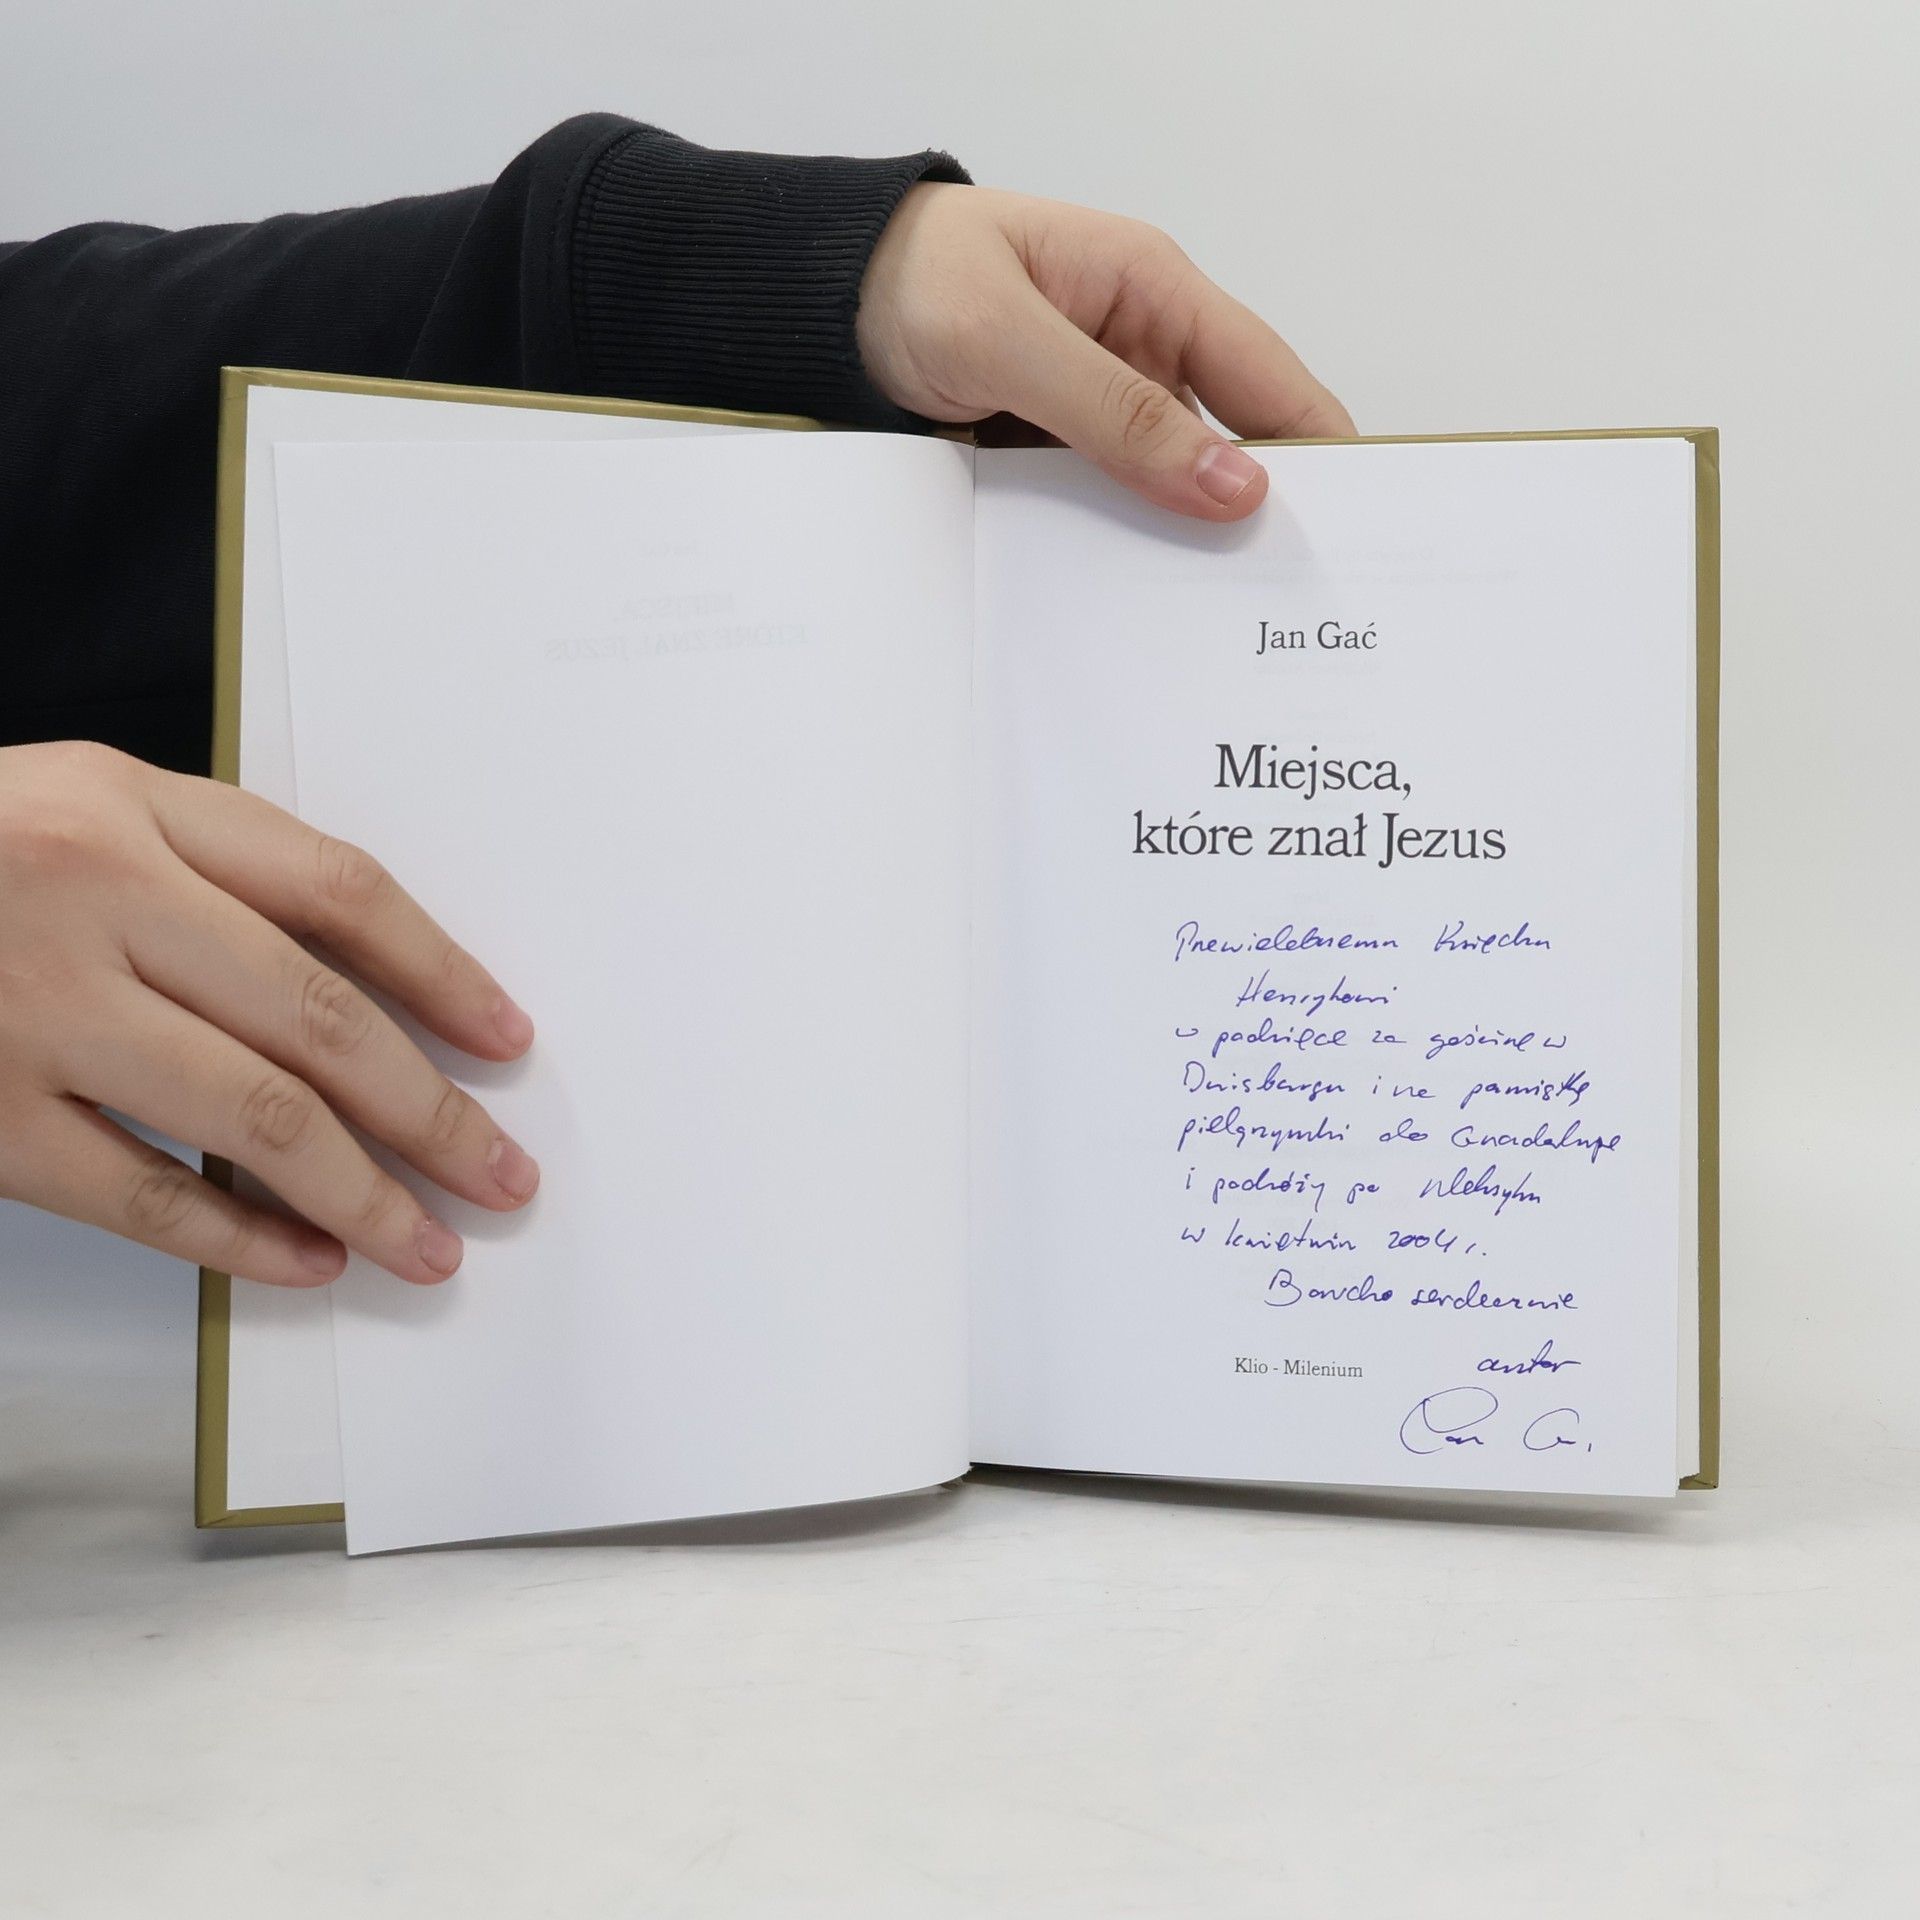 Jan Gać
Miejsca,
które znał Jezus
Przewielebnemu Księdzu
Henrykowi
w podzięce za gościnę w
Duisburgu i na pamiątkę
pielgrzymki do Guadalupe
i podróży po Meksyku
w kwietniu 2004 r.
Bardzo serdecznie
autor
Klio - Milenium
Jan G.